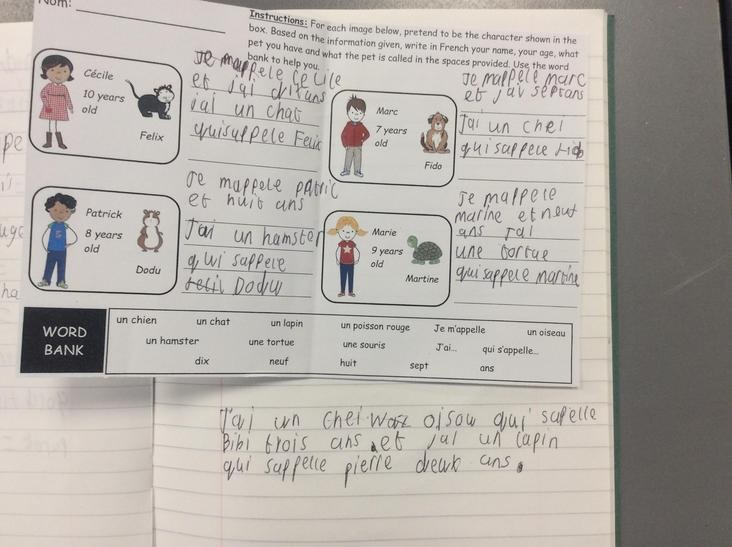 Nom:
Instructions: For each image below, pretend to be the character shown in the
box. Based on the information given, write in French your name, your age, what
pet you have and what the pet is called in the spaces provided. Use the word
bank to help you.
Cécile
10 years
old
Felix
Je mappele Cecile
et j'ai dixans
jai un chat
quisappele Felix
Marc
7 years
old
Fido
Je mappele marc
et j'ai septans
J'ai un chei
qui sappele Fido
Patrick
8 years
old
Dodu
Je mappele patric
et huit ans
J'ai un hamster
qui sappele
Dodu
Marie
9 years
old
Martine
Je mappele
marine et neuf
ans jai
une tortue
quisappele martine
WORD
BANK
un chien un chat un lapin un poisson rouge Je m'appelle un oiseau
un hamster une tortue une souris J'ai... qui s'appelle...
dix neuf huit sept ans
J'ai un chei oisou qui' sapelle
Bibi trois ans et jai un lapin
qui sappelle pierre deux ans.